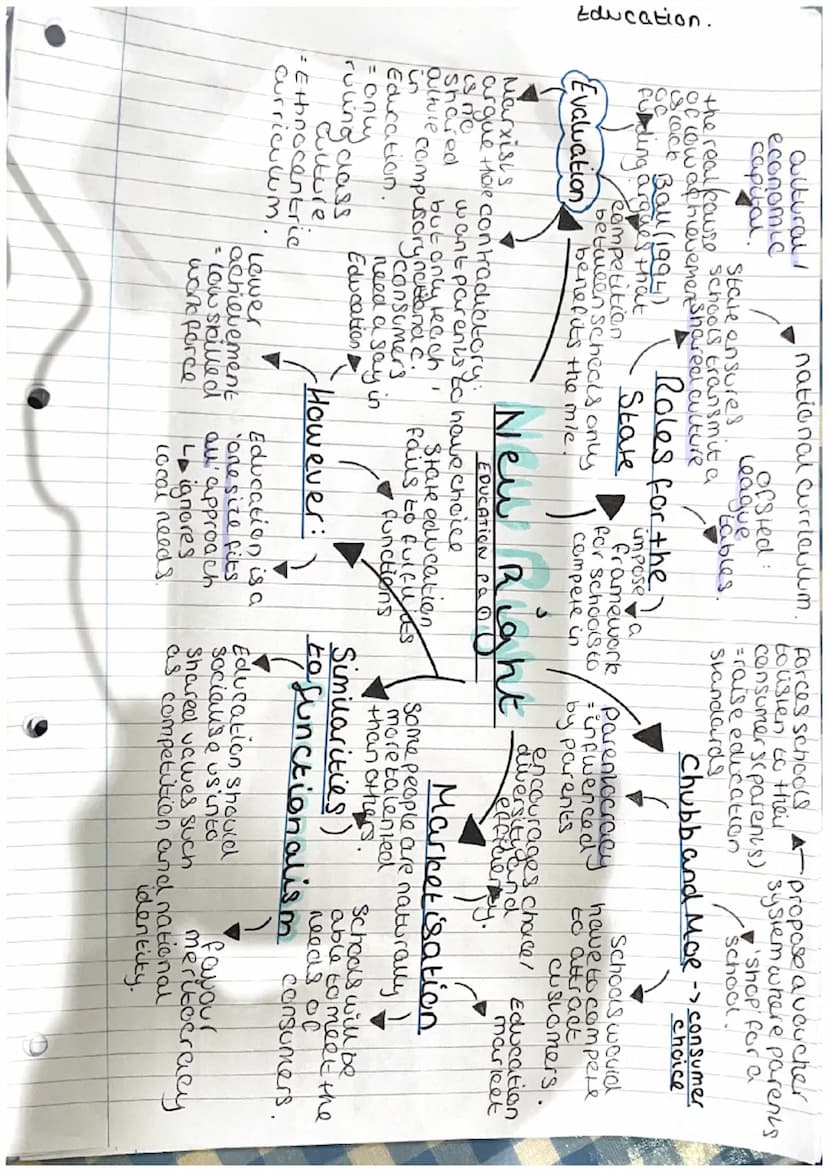 Education.
New Right
EDUCATION
Evaluation
Marxists
argue there
is no
shared
culture
in
Education.
= only
ruling class
culture
= Ethnocentric
curriculum.
contradictory:
want parents to have choice
but only teach
compulsory nat and c.
consumers
need a say in
Education
Ball (1994)
argues that
competition
between schools only
benefits the m/c.
the real cause
of low achievement
is lack
of
funding
cultural/
economic
capital.
Roles for the
State
State ensures
schools transmit a
shared culture
national curriculum.
ofsted:
league
tables.
impose a
framework
for schools to
compete in
Chubb and Moe -> consumer
choice
Parentocracy
= influenced
by parents
forces schools
to listen to their
consumers (parents)
= raise education
standards
propose a voucher
system where parents
'shop' for a
school.
Schools would
have to compete
to attract
customers.
Marketisation
encourages choice/
diversity and
efficiency.
Education
market
Schools will be
able to meet the
needs of
consumers.
Similarities
to functionalism
Some people are naturally
more talented
than others.
favour
meritocracy
Education should
socialise us into
shared values such
as competition and national
identity.
However:
State education
fails to fulfil its
functions
Education is a
'one size fits
all' approach
↳ ignores
local needs
lower
achievement
= low skilled
workforce